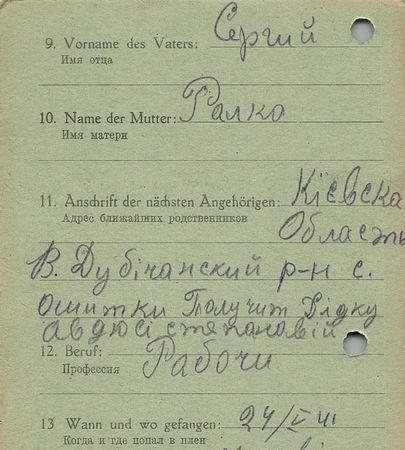 9. Vorname des Vaters: Сергий
Имя отца
10. Name der Mutter: Галка
Имя матери
11. Anschrift der nächsten Angehörigen: Кіевска
Адрес ближайших родственников
Область
В. Дубічанский р-н с.
Ошитки Получит Дідку
Авдюсі степановій
12. Beruf: Рабочи
Профессия
13 Wann und wo gefangen: 24/V 41
Когда и где попал в плен